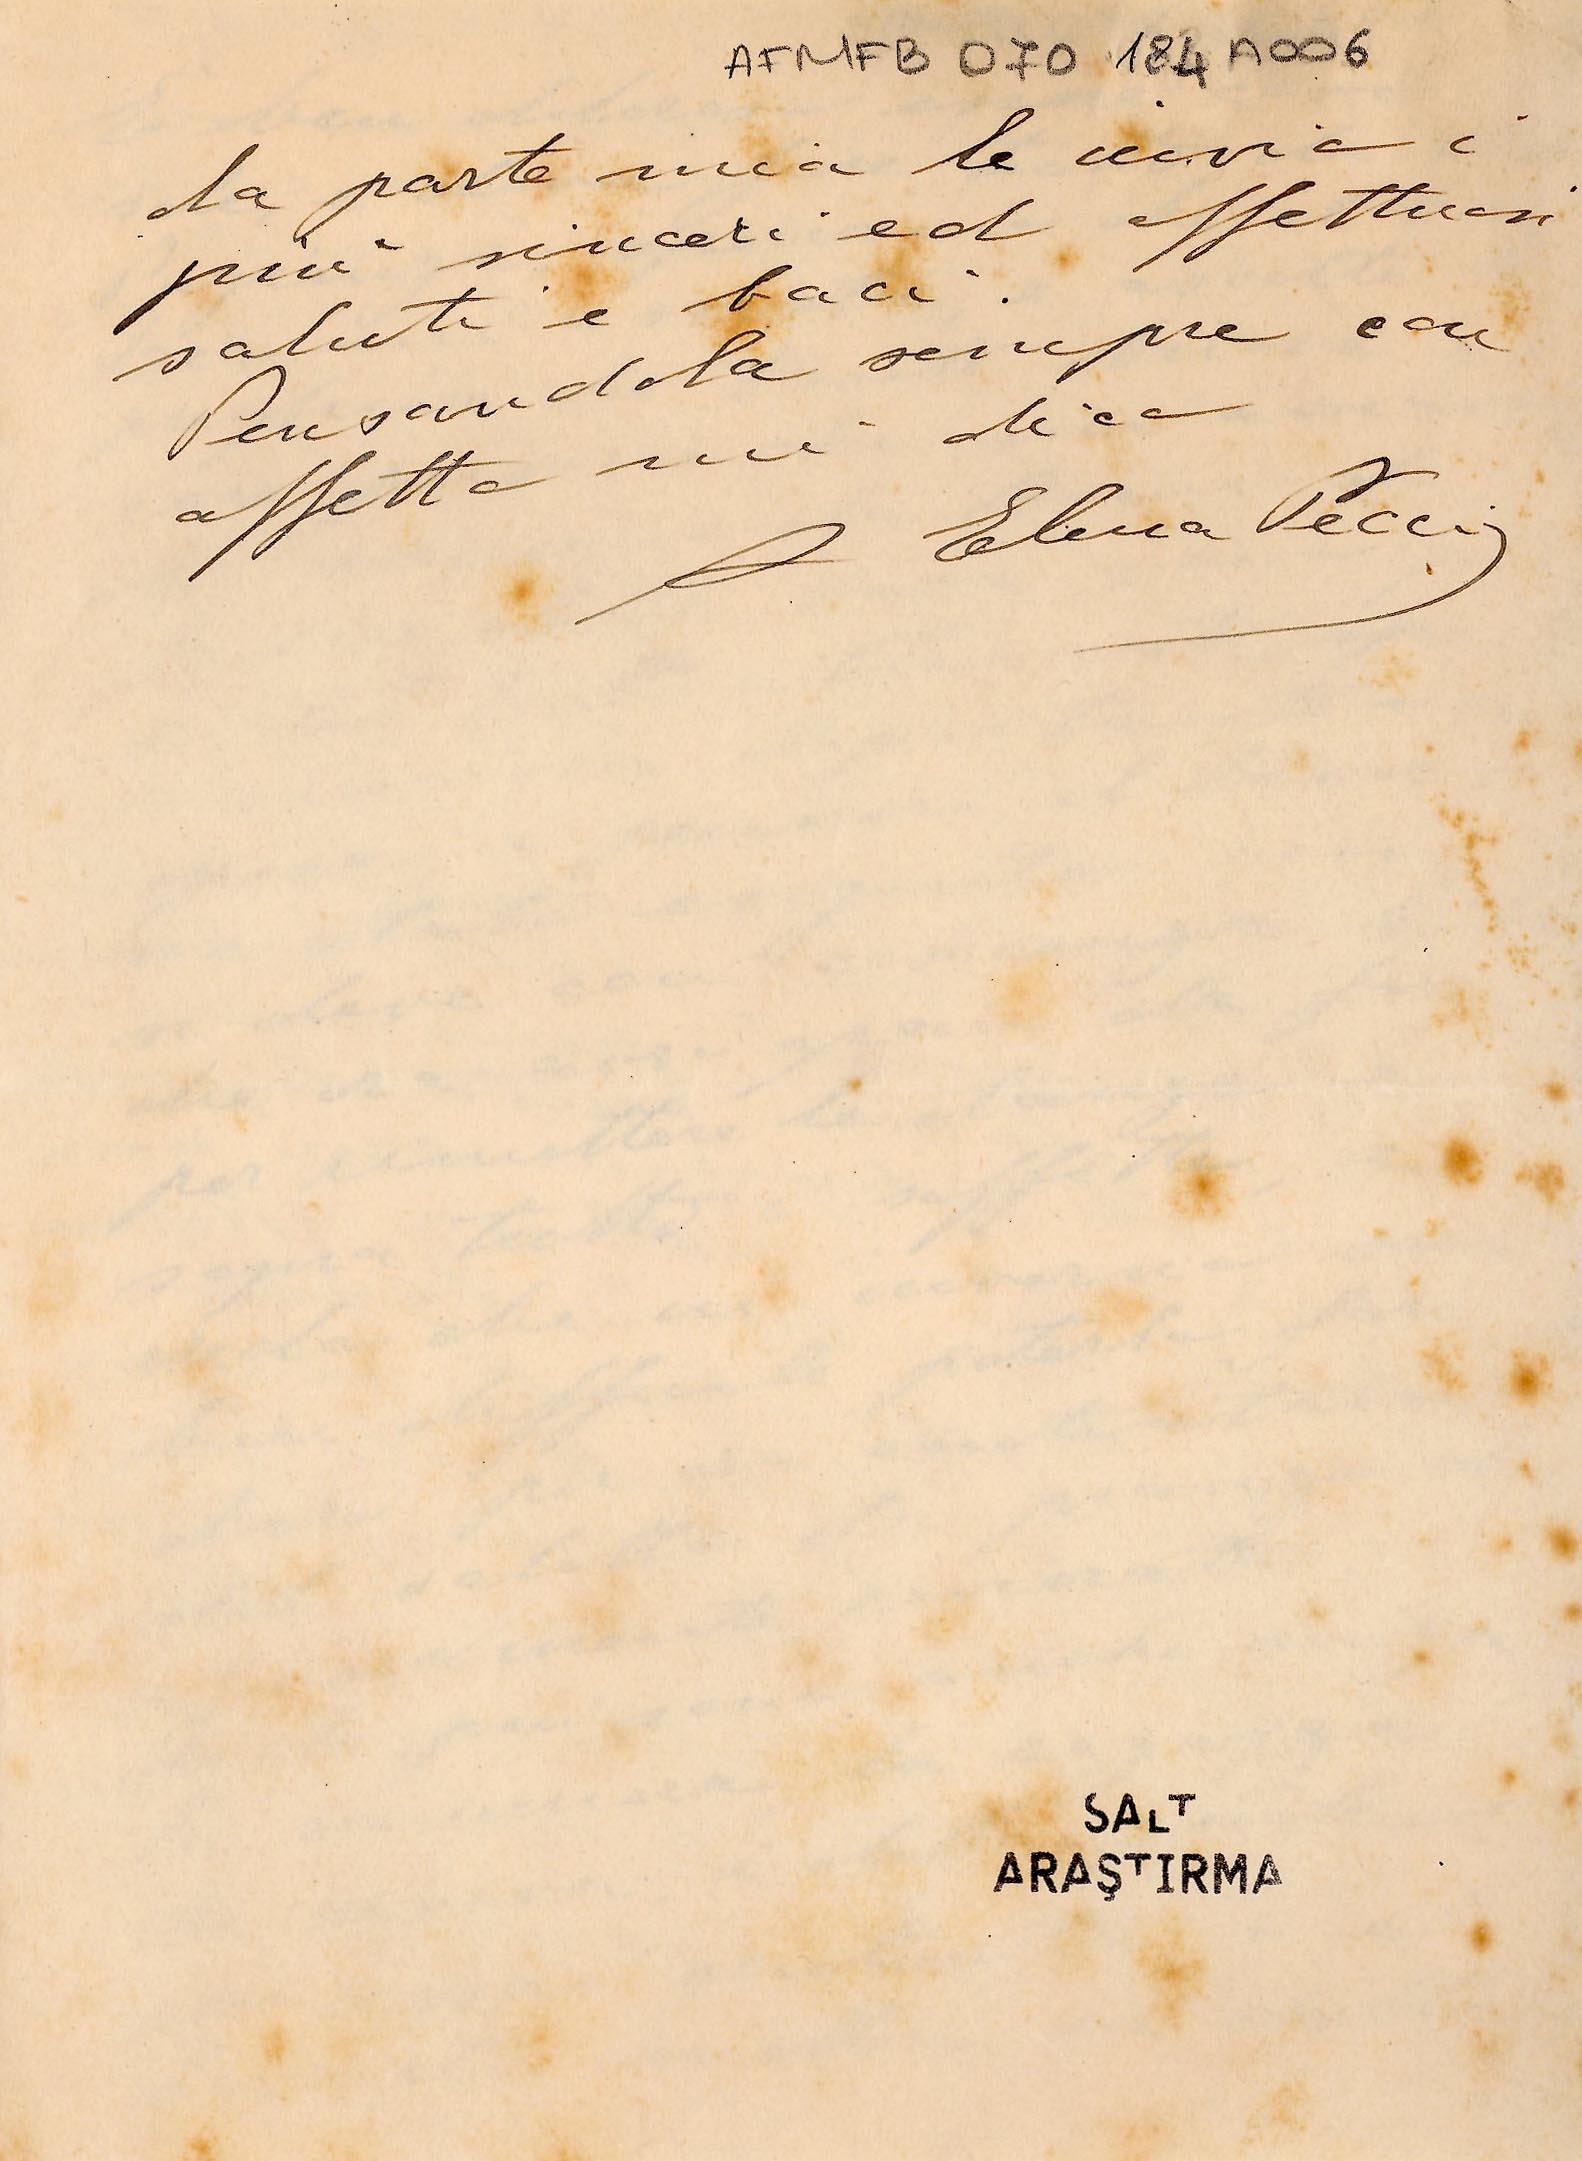 AFMFB 070 184 A006
da parte mia le invio i
più sinceri ed affettuosi
saluti e baci.
Pensandola sempre con
affetto mi dico
Elena Pecci
SALT
ARAŞTIRMA